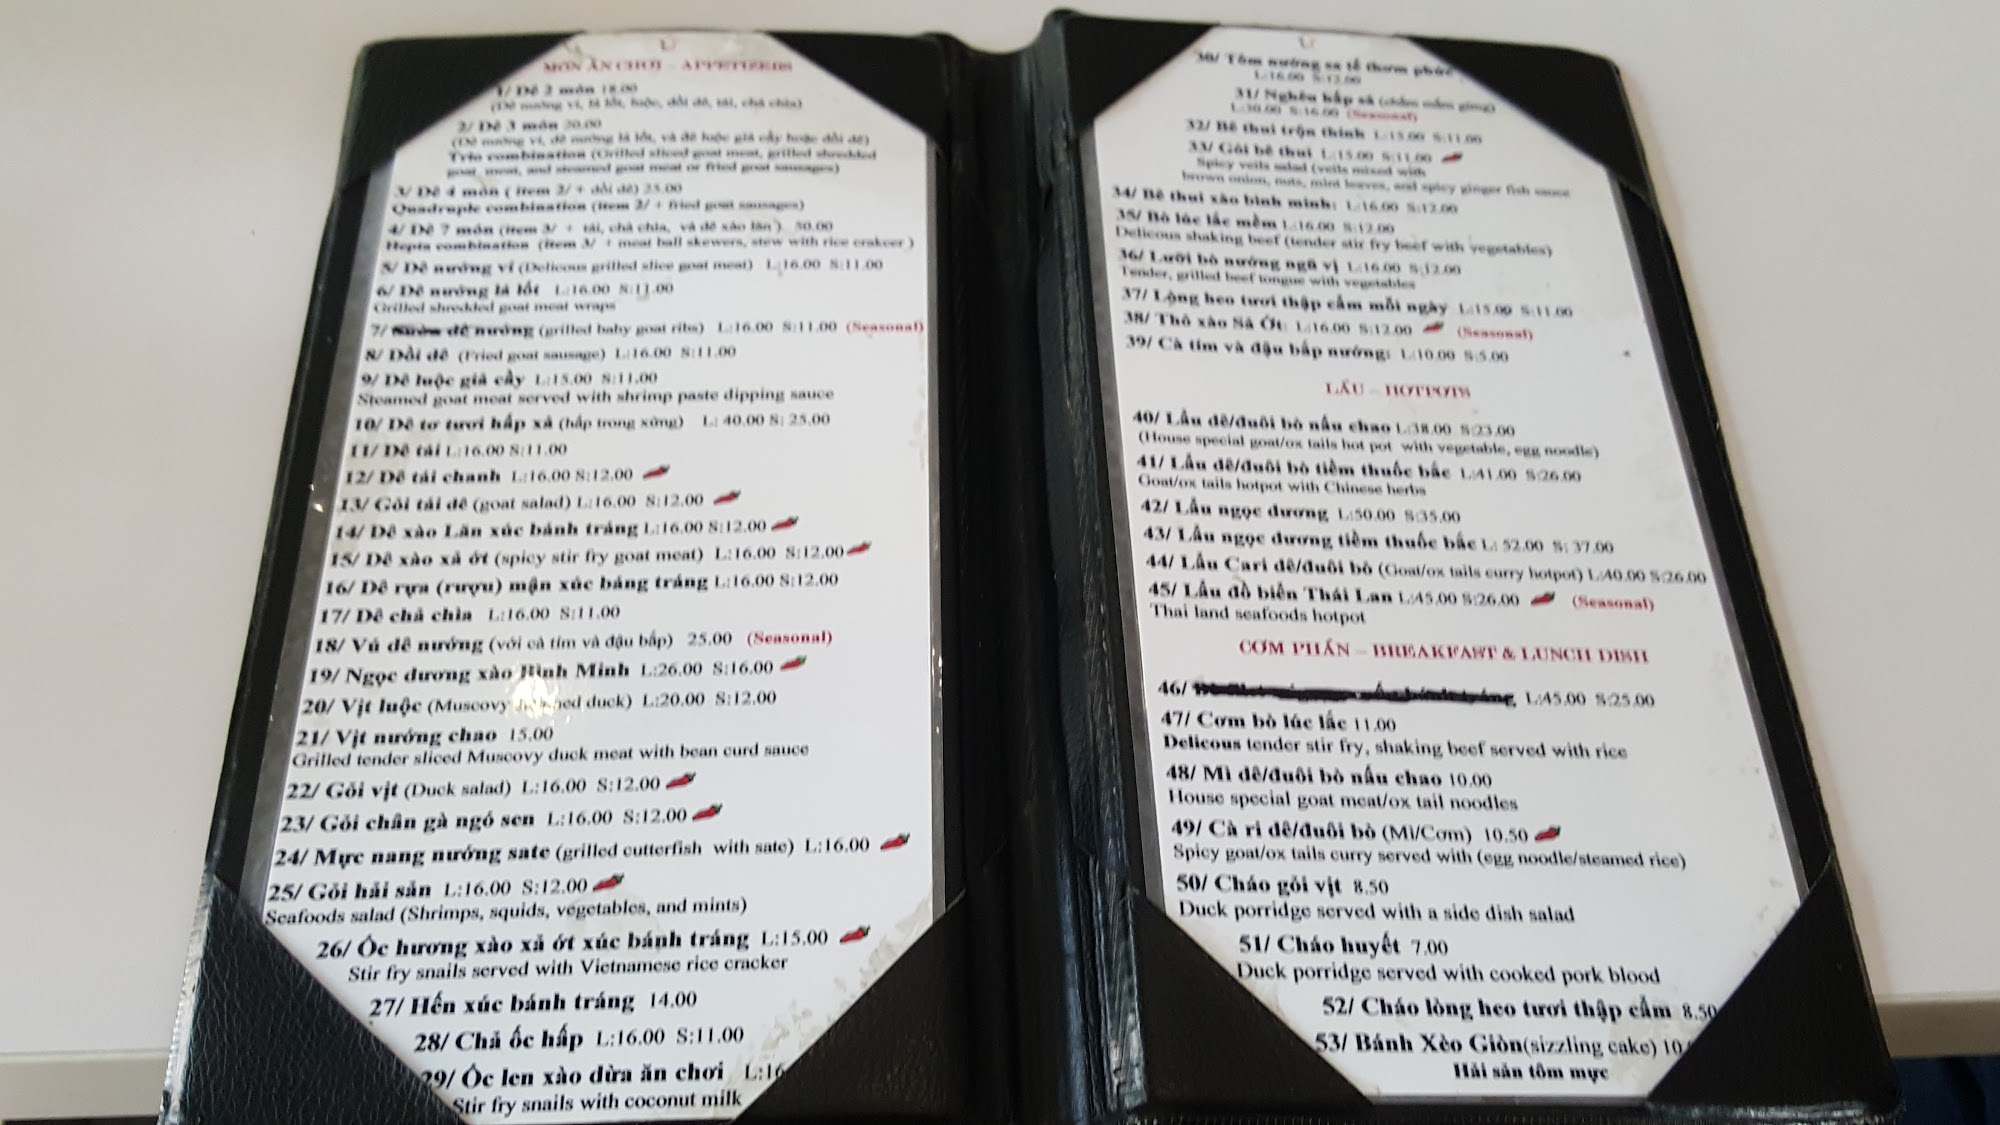 MÓN ĂN CHƠI – APPETIZERS
1/ Dê 2 món 18.00
(Dê nướng vỉ, lá lốt, luộc, dồi dê, tái, chả chìa)
2/ Dê 3 món 20.00
(Dê nướng vỉ, dê nướng lá lốt, và dê luộc giả cầy hoặc dồi dê)
Trio combination (Grilled sliced goat meat, grilled shredded
goat, meat, and steamed goat meat or fried goat sausages)
3/ Dê 4 món ( item 2/ + dồi dê) 25.00
Quadruple combination (item 2/ + fried goat sausages)
4/ Dê 7 món (item 3/ + tái, chả chìa, và dê xào lăn ) 50.00
Hepta combination (item 3/ + meat ball skewers, stew with rice crakcer )
5/ Dê nướng vỉ (Delicous grilled slice goat meat) L:16.00 S:11.00
6/ Dê nướng lá lốt L:16.00 S:11.00
Grilled shredded goat meat wraps
7/ Sườn dê nướng (grilled baby goat ribs) L:16.00 S:11.00 (Seasonal)
8/ Dồi dê (Fried goat sausage) L:16.00 S:11.00
9/ Dê luộc giả cầy L:15.00 S:11.00
Steamed goat meat served with shrimp paste dipping sauce
10/ Dê tơ tươi hấp xả (hấp trong xửng) L: 40.00 S: 25.00
11/ Dê tái L:16.00 S:11.00
12/ Dê tái chanh L:16.00 S:12.00
13/ Gỏi tái dê (goat salad) L:16.00 S:12.00
14/ Dê xào Lăn xúc bánh tráng L:16.00 S:12.00
15/ Dê xào xả ớt (spicy stir fry goat meat) L:16.00 S:12.00
16/ Dê rựa (rượu) mận xúc báng tráng L:16.00 S:12.00
17/ Dê chả chìa L:16.00 S:11.00
18/ Vú dê nướng (với cà tím và đậu bắp) 25.00 (Seasonal)
19/ Ngọc dương xào Bình Minh L:26.00 S:16.00
20/ Vịt luộc (Muscovy duck) L:20.00 S:12.00
21/ Vịt nướng chao 15.00
Grilled tender sliced Muscovy duck meat with bean curd sauce
22/ Gỏi vịt (Duck salad) L:16.00 S:12.00
23/ Gỏi chân gà ngó sen L:16.00 S:12.00
24/ Mực nang nướng sate (grilled cutterfish with sate) L:16.00
25/ Gỏi hải sản L:16.00 S:12.00
Seafoods salad (Shrimps, squids, vegetables, and mints)
26/ Ốc hương xào xả ớt xúc bánh tráng L:15.00
Stir fry snails served with Vietnamese rice cracker
27/ Hến xúc bánh tráng 14.00
28/ Chả ốc hấp L:16.00 S:11.00
29/ Ốc len xào dừa ăn chơi L:16
Stir fry snails with coconut milk
30/ Tôm nướng sa tế thơm phức
L:16.00 S:12.00
31/ Nghêu hấp sả (chấm mắm gừng)
L:30.00 S:16.00 (Seasonal)
32/ Bê thui trộn thính L:15.00 S:11.00
33/ Gỏi bê thui L:15.00 S:11.00
Spicy veils salad (veils mixed with
brown onion, nuts, mint leaves, and spicy ginger fish sauce
34/ Bê thui xào bình minh: L:16.00 S:12.00
35/ Bò lúc lắc mềm L:16.00 S:12.00
Delicous shaking beef (tender stir fry beef with vegetables)
36/ Lưỡi bò nướng ngũ vị L:16.00 S:12.00
Tender, grilled beef tongue with vegetables
37/ Lòng heo tươi thập cẩm mỗi ngày L:15.00 S:11.00
38/ Thỏ xào Sả Ớt: L:16.00 S:12.00 (Seasonal)
39/ Cà tím và đậu bắp nướng: L:10.00 S:5.00
LẨU – HOTPOTS
40/ Lẩu dê/đuôi bò nấu chao L:38.00 S:23.00
(House special goat/ox tails hot pot with vegetable, egg noodle)
41/ Lẩu dê/đuôi bò tiềm thuốc bắc L:41.00 S:26.00
Goat/ox tails hotpot with Chinese herbs
42/ Lẩu ngọc dương L:50.00 S:35.00
43/ Lẩu ngọc dương tiềm thuốc bắc L: 52.00 S: 37.00
44/ Lẩu Cari dê/đuôi bò (Goat/ox tails curry hotpot) L:40.00 S:26.00
45/ Lẩu đồ biển Thái Lan L:45.00 S:26.00 (Seasonal)
Thai land seafoods hotpot
CƠM PHẦN – BREAKFAST & LUNCH DISH
46/ L:45.00 S:25.00
47/ Cơm bò lúc lắc 11.00
Delicous tender stir fry, shaking beef served with rice
48/ Mì dê/đuôi bò nấu chao 10.00
House special goat meat/ox tail noodles
49/ Cà ri dê/đuôi bò (Mì/Cơm) 10.50
Spicy goat/ox tails curry served with (egg noodle/steamed rice)
50/ Cháo gỏi vịt 8.50
Duck porridge served with a side dish salad
51/ Cháo huyết 7.00
Duck porridge served with cooked pork blood
52/ Cháo lòng heo tươi thập cẩm 8.50
53/ Bánh Xèo Giòn(sizzling cake) 10
Hải sản tôm mực